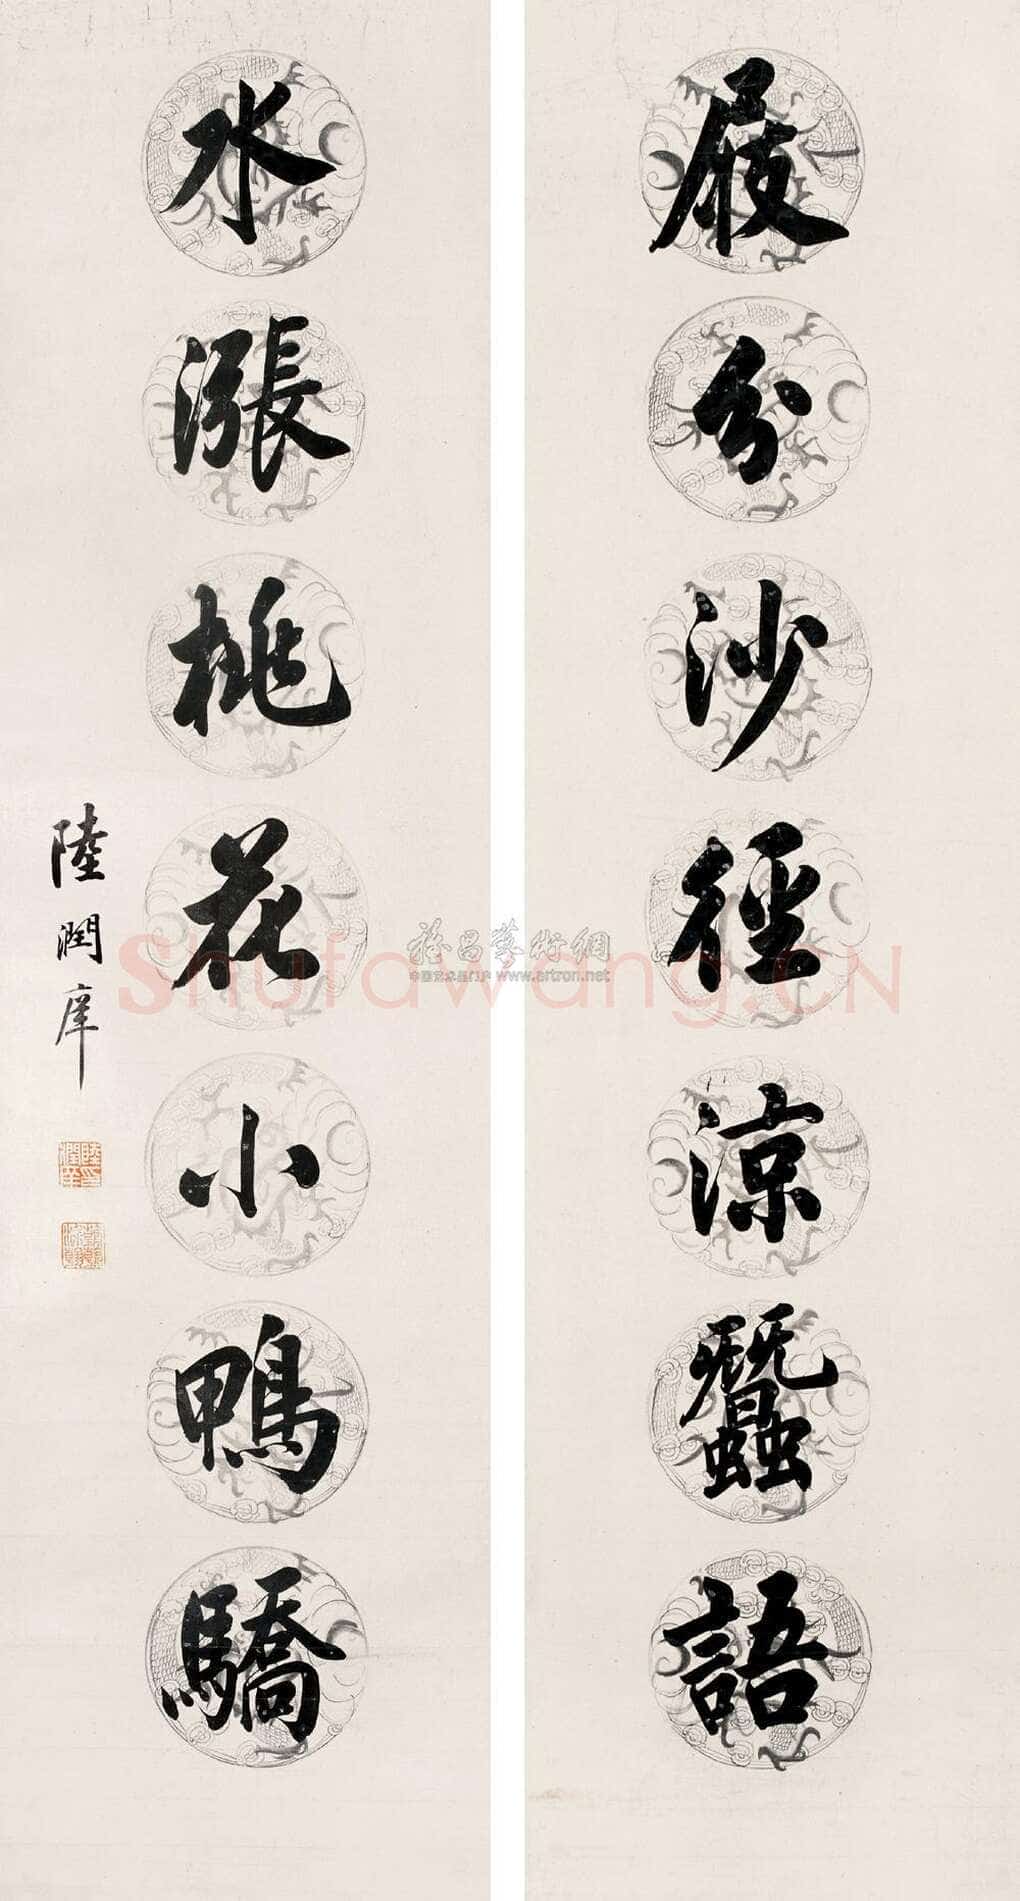 屐分沙徑涼蠶語
水漲桃花小鴨驕
陸潤庠
雅昌藝術網
中国艺术品门户 www.artron.net
Shufawang.CN